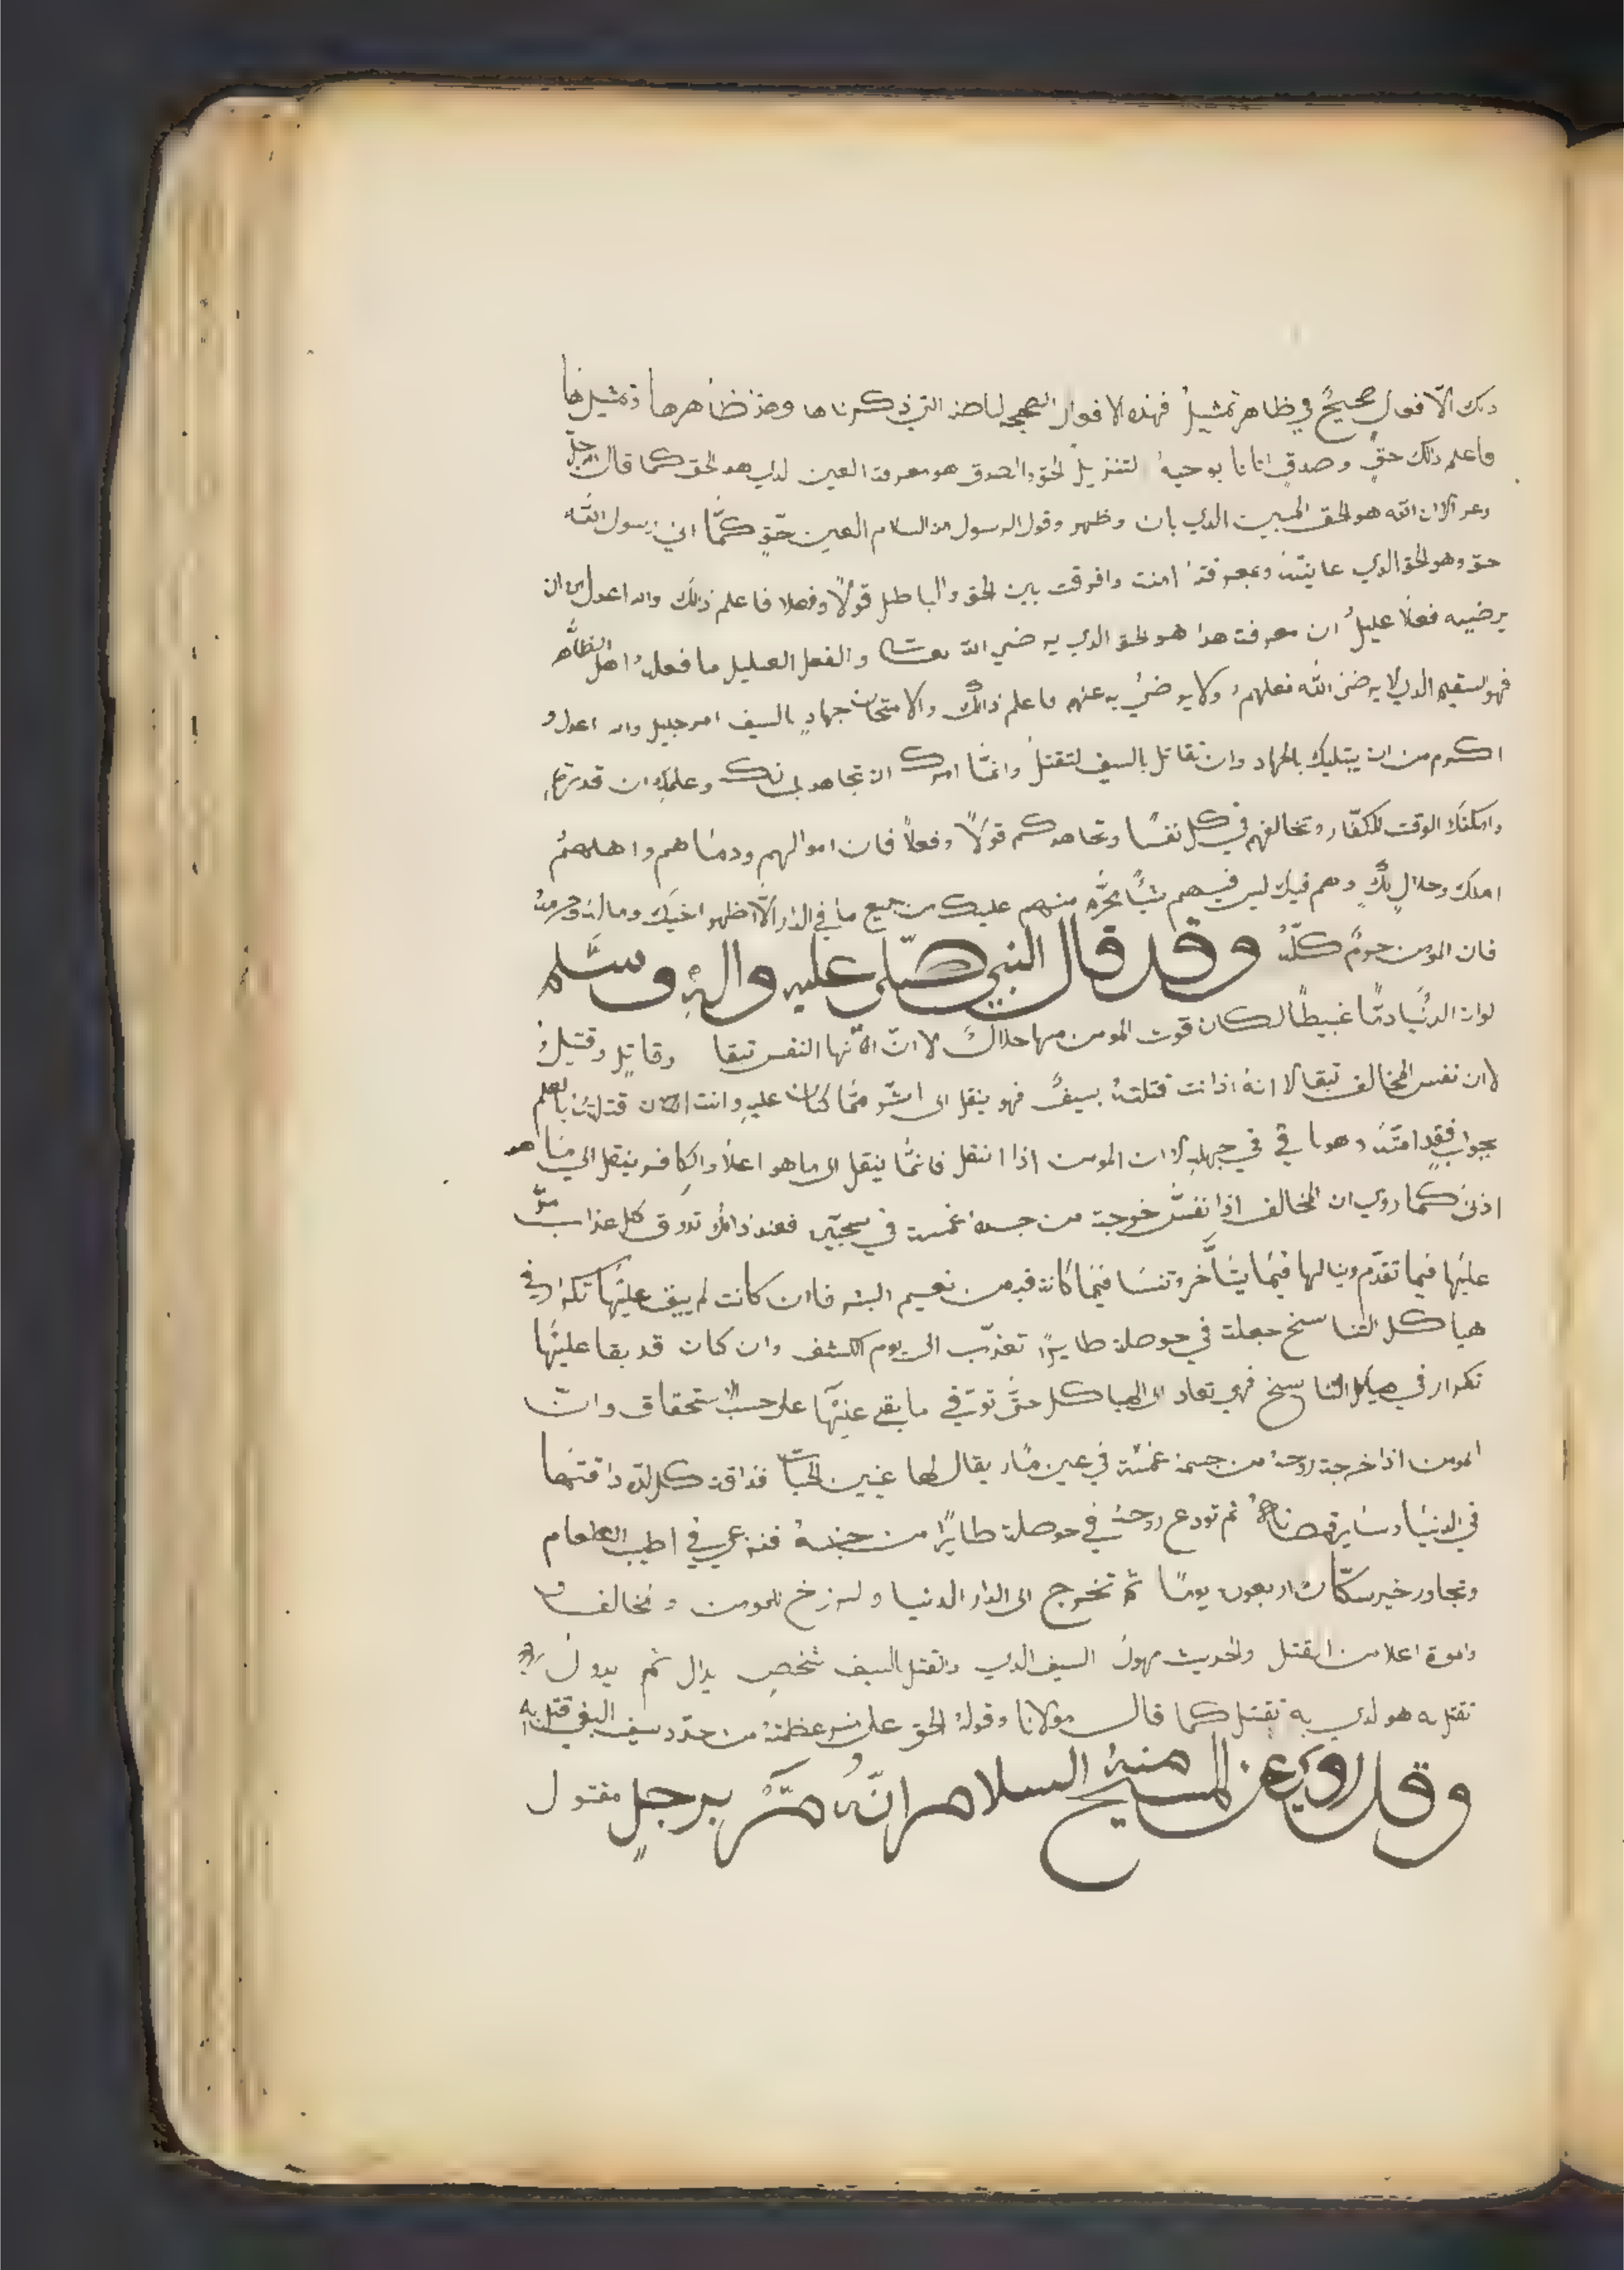 ذلك الّا فعال صحيحً في ظاهر تمثيلُ فهذه الافوال التي ذكرناها وهذ ظاهرها وتمثيلها
فاعلم ذلك حقٍ وصدقٍ اتانا بوحيهُ لتنزيلُ الحق والصدق هو معرفة العين لدي هو الحق كما قال
الا ان الله هو الحق المبين الدي بان وظهر وقول الرسول منه السلام العين حّقٍ كمّا اني رسول الله
حق وهو الحق الدي عاينتهُ وبمعرفتهُ امنت وافرقت بين الحق والباطل قولًا وفعلا فاعلم ذلك والله اعدل من ان
يرضيه فعلًا عليلُ ان معرفت هدا هو الحق الدي يرضي الله والفعل العليل ما فعلهُ اهل الظّاهر
فهو السقيم الدي لا يرضى الله فعلهمُ ولا يرضيُ به عنهم فاعلم ذالكُ والامتحان جهادٍ بالسيف امر جليل والله اعدل و
اكرم من ان يبتليك بالجهاد وان تقاتل بالسيف لتقتلُ وانمّا امرك ان تجاهد بلسانك وعلمك ان قدرتهم
وامكنك الوقت للكفّار وتخالفهم في كل نفسًا وتجاهدكم قولًا وفعلاً فان اموالهم ودماهم واهلهمُ
املك وحلالٍ لكٍ وهم فيك ليس فيهم شيًا يحرّم منهم عليك من جميع ما في الدار الّا ظهر اخيك وماله وحرمهُ
فان المومن حرمٌ كلّهُ وقد قال النبي صلّى عليه واله وسّلم
لوان الدنُيا دمًّا غبيطًا لكان قوت المومن منها حلالً لا انّ النفس تبقا وقاتلٍ وقتيلُ
لان نفس المخالف تبقا لا انهُ اذا انت قتلتهُ بسيفٍ فهو ينقل الى اشّر ممّا كان عليهِ وانت ان قتلتهُ بالعلم
بجوابٍ فقدٍ امتّهُ وهو باقي في جهلهِ لا ان المومن اذا انتقل فانمّا ينتقل الى ما هو اعلا والكافر ينتقل الى ما هو
ادنى كما روي ان المخالف اذا نفسهُ خرجت من جسده غمست في سجيّن فعند ذالك تدوق كل عذاب مرّ
عليها فيما تقدّم وينالها فيما يتأخر وتنسا فيما كانت فيه من نعيم البته فاان كانت لم يبقى عليها تكرار في
هياكل التناسخ جعلت في حوصلة طايرًا تعذّب الى يوم الكشف وان كان قد بقا عليها
تكرار في هياكل التناسخ فهي تعاد الى الهياكل حتّى توّفي ما بقى عليها على حسب الاستحقاق وانّ
المومن اذا خرجت روحهُ من جسمهُ غمسّت في عين ماء يقال لها عين الحياة فذاقت كل لذه ذاقتها
في الدنيا وساير قمصانها ثم تودع روحهُ في حوصلة طايرًا من جنه فترعى في اطيب الطعام
وتجاور خير سكّان اربعون يومًا ثم تخرج الى الدار الدنيا ولبرزخ للمومن ومخالف
وموت اعلا من القتل والحديث مهولُ السيف الدي والقتل السيف شخصٍ يدال ثم يدول
تقتل به هو لدي به تقتل كما قال مولانا وقولهُ الحق على منبر عظمتهُ من جرّد سيف البغي قتل به
وقد روي عن المسيح منهُ السلام انّهُ مّرَ برجلٍ مقتول